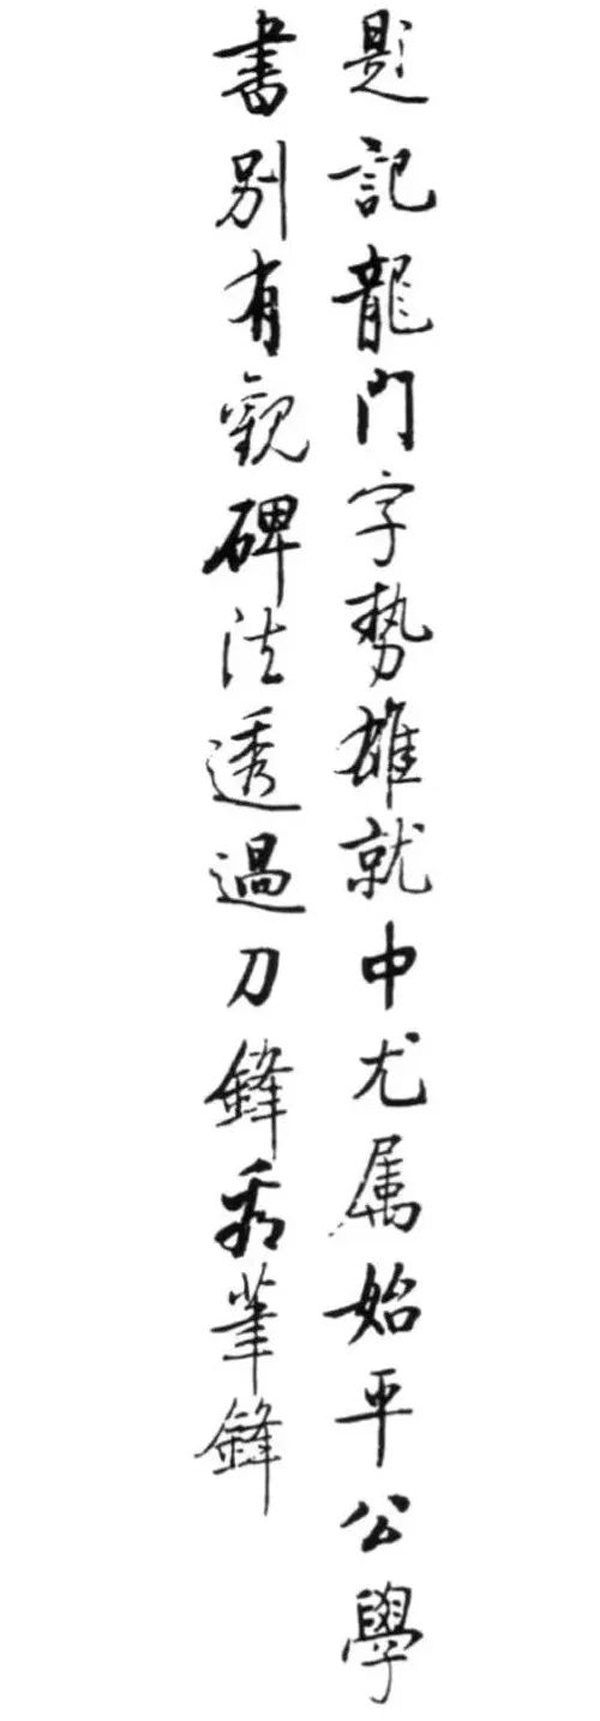 題記龍門字勢雄就中尤属始平公學
書別有觀碑法透過刀鋒看筆鋒